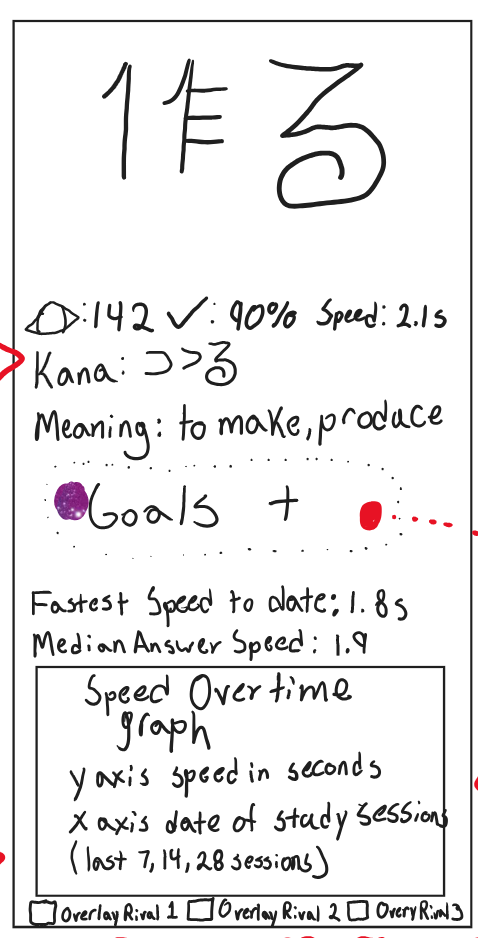 作る
:142 ✓: 90% Speed: 2.1s
Kana: つくる
Meaning: to make, produce
Goals +
Fastest Speed to date: 1.8s
Median Answer Speed: 1.9
Speed Overtime
graph
y axis speed in seconds
x axis date of study sessions
(last 7, 14, 28 sessions)
Overlay Rival 1 Overlay Rival 2 Overy Rival 3